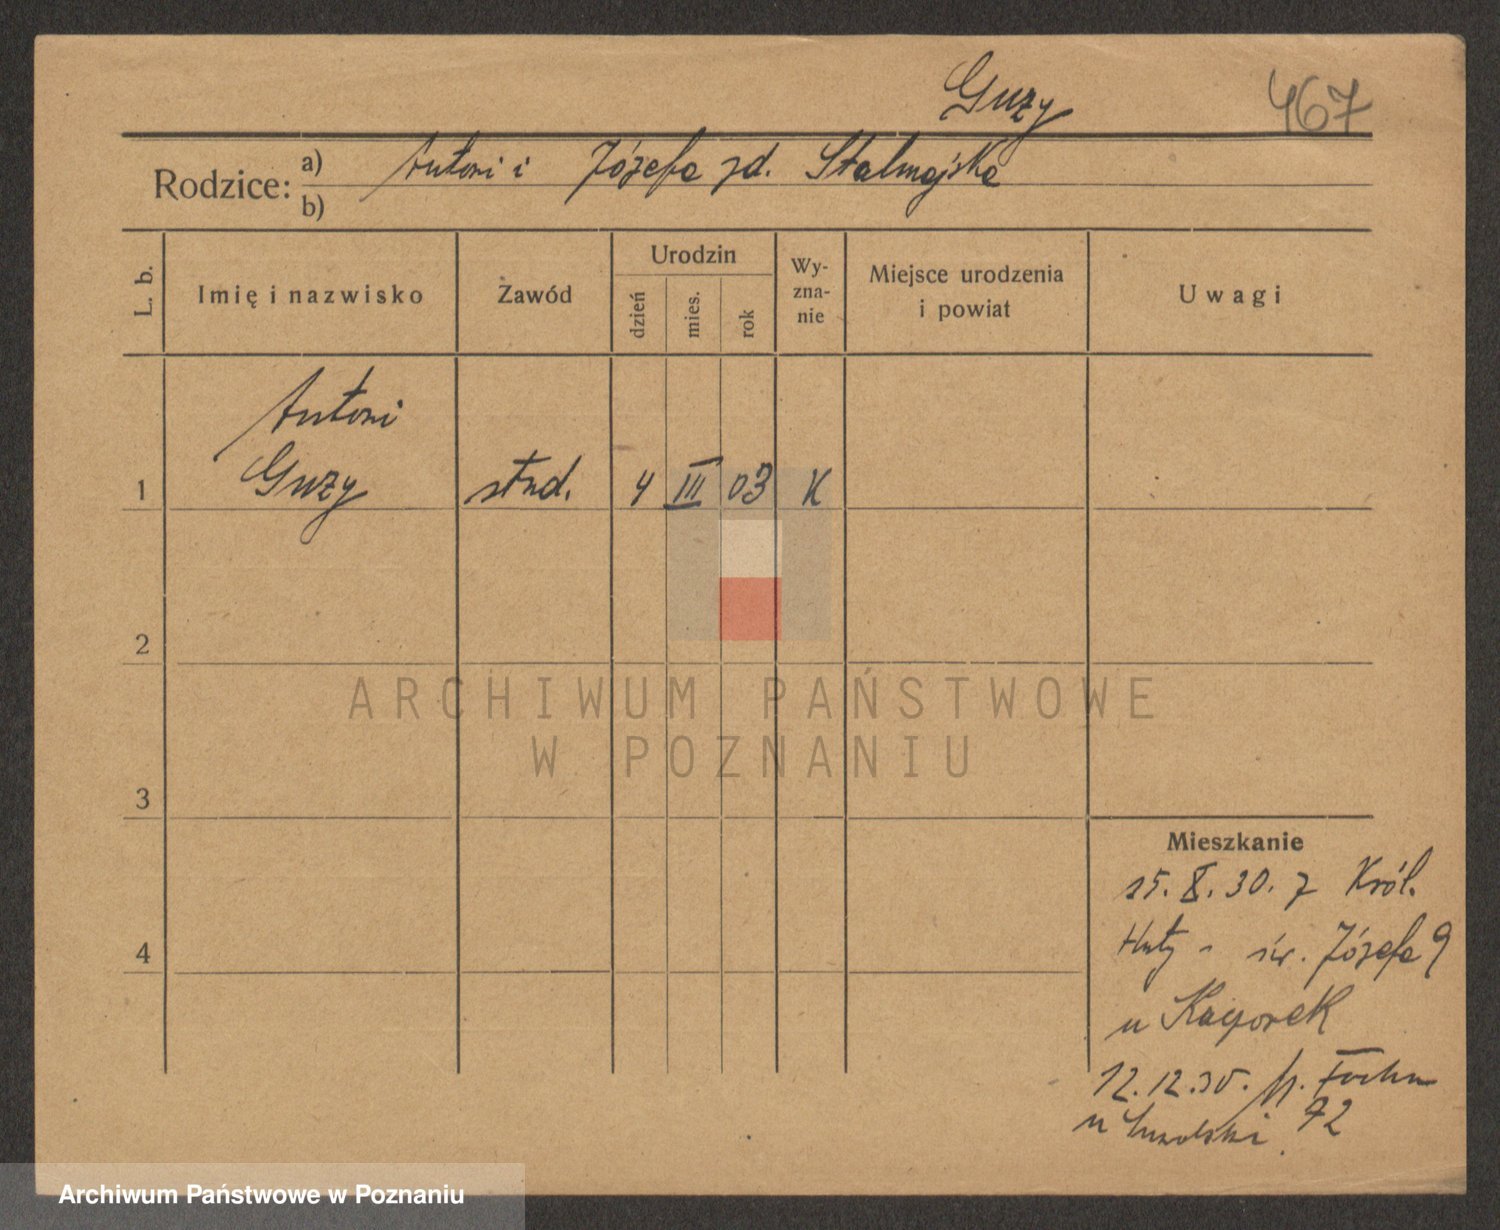 Guzy 467
Rodzice: a) Antoni i Józefa zd. Stalmajska
b)
L. b. Imię i nazwisko Zawód Urodzin dzień mies. rok Wy-zna-nie Miejsce urodzenia i powiat Uwagi
Antoni
1 Guzy stud. 4 III 03 K
2
ARCHIWUM PAŃSTWOWE
W POZNANIU
3
Mieszkanie
15. X. 30. z Król.
Huty - św. Józefa 9
4
u Kacporek
12.12.30. Focha
u 72
Archiwum Państwowe w Poznaniu